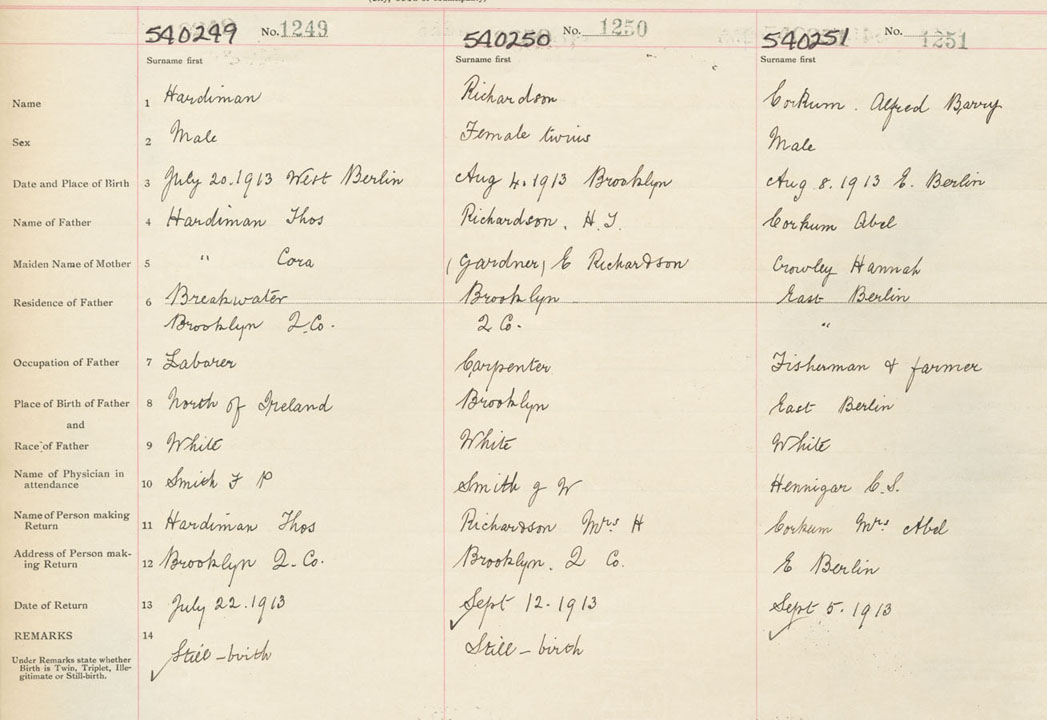 540249 No. 1249 540250 No. 1250 540251 No. 1251
Surname first Surname first Surname first
Name 1 Hardiman Richardson Corkum . Alfred Barry
Sex 2 Male Female twins Male
Date and Place of Birth 3 July 20.1913 West Berlin Aug 4.1913 Brooklyn Aug 8.1913 E. Berlin
Name of Father 4 Hardiman Thos Richardson. H.T. Corkum Abel
Maiden Name of Mother 5 " Cora (Gardner) E Richardson Crowley Hannah
Residence of Father 6 Breakwater Brooklyn East Berlin
Brooklyn Q.Co. Q Co. "
Occupation of Father 7 Laborer Carpenter Fisherman & farmer
Place of Birth of Father 8 North of Ireland Brooklyn East Berlin
and
Race of Father 9 White White White
Name of Physician in
attendance 10 Smith F P Smith J W Hennigar C.S.
Name of Person making
Return 11 Hardiman Thos Richardson Mrs H Corkum Mrs Abel
Address of Person mak-
ing Return 12 Brooklyn Q. Co. Brooklyn. Q Co. E Berlin
Date of Return 13 July 22.1913 Sept 12.1913 Sept 5.1913
REMARKS 14
Under Remarks state whether
Birth is Twin, Triplet, Ille-
gitimate or Still-birth.
Still-birth Still-birth